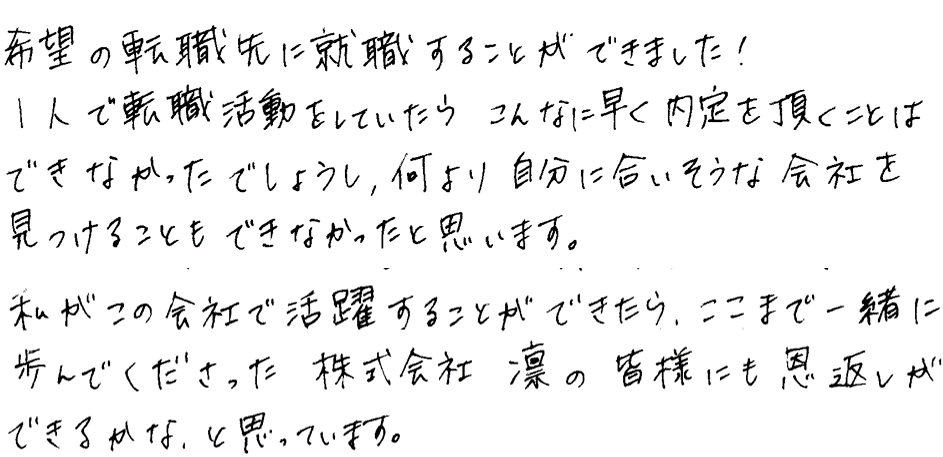 希望の転職先に就職することができました!
1人で転職活動をしていたら こんなに早く内定を頂くことは
できなかったでしょうし,何より自分に合いそうな会社を
見つけることもできなかったと思います。
私がこの会社で活躍することができたら、ここまで一緒に
歩んでくださった 株式会社 凛の皆様にも恩返しが
できるかな、と思っています。